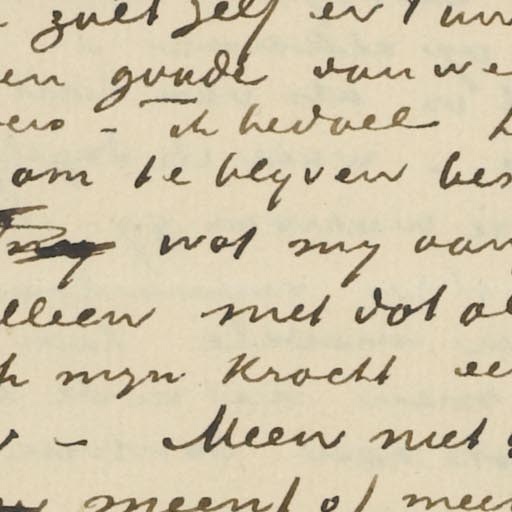 zult zelf er
en goude van we
- ik bedoel
om te blyven bes
wat my aan
lleen met dat al
myn kracht ee
- Meen niet
meent of meen